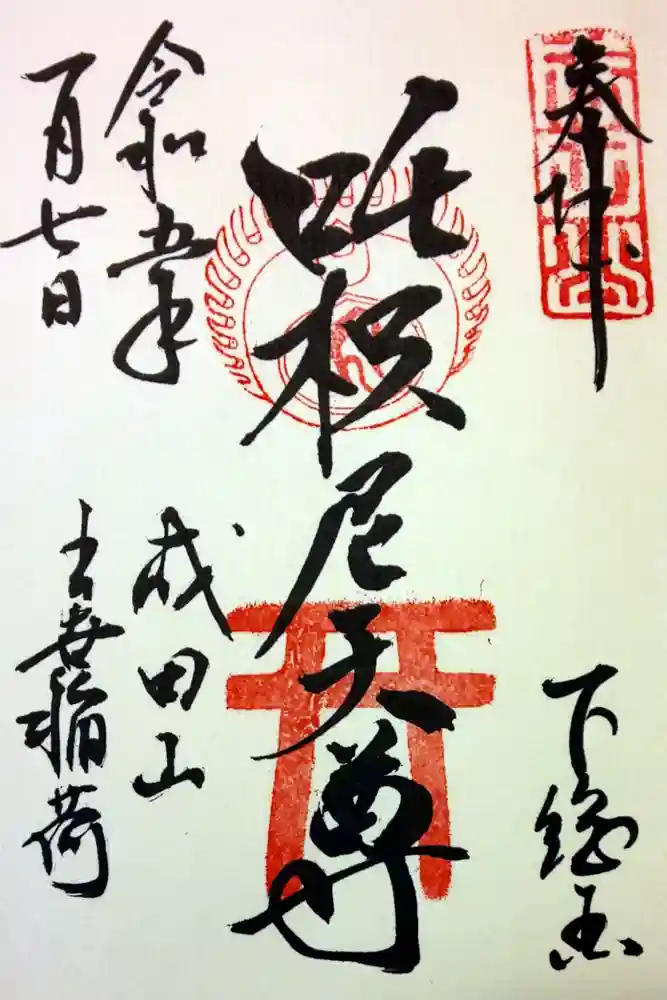 奉拝
下総国
吒枳尼天尊
令和五年
成田山
一月七日
出世稲荷